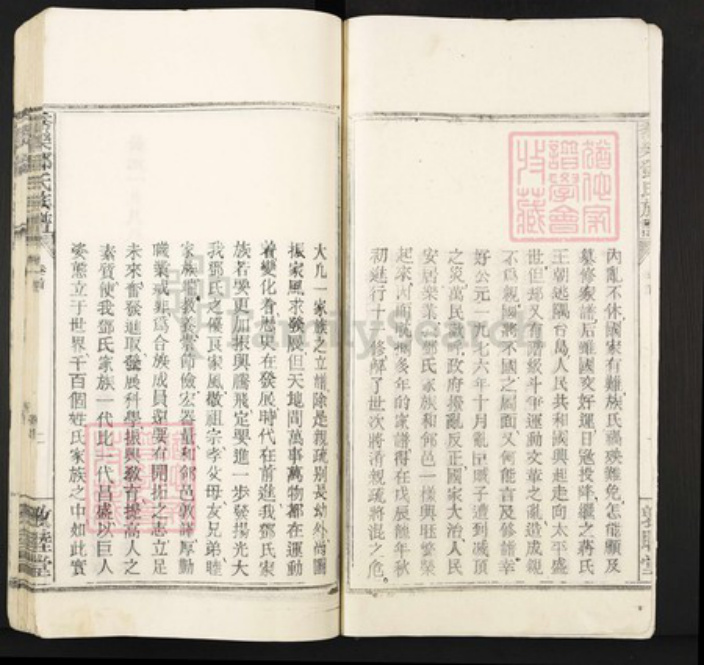 內亂不休國家有難族氏禍殃難免怎能願及
墓修家譜后雖國交好運日寇投降繼之蔣氏
王朝逃隅台島人民共和國興起走向太平盛
世但却又有階級斗爭運動文革之亂造成親
不爲親國將不國之局面又何能言及修譜幸
好公元一九七六年十月亂臣賊子遭到滅頂
之災萬民歡呼政府撥亂反正國家大治人民
安居樂業我鄧氏家族和郃邑一樣興旺繁榮
起來因而 後年的家譜得在戊辰龍年秋
初進行十 修解了世次將淆親疏將混之危
大凡一家族之立譜除是親疏别長幼外尚圖
振家風求發展但天地間萬事萬物都在運動
着變化着歷史在發展時代在前進我鄧氏家
族若要更加振興騰飛定要進一步發揚光大
我鄧氏之優良家風敬祖宗孝父母友兄弟睦
家族端教養奮節儉宏器量和郃邑敦 厚勤
職業戒非爲合族成員還要有開拓之志立足
未來奮發進取發展科學振興教育提高人之
素質使我鄧氏家族一代比一代昌盛以巨人
姿態立于世界千百個姓氏家族之中如此實
鄧氏族譜
卷首
敦睦堂
鄧氏族譜
敦睦堂
譜學會
收藏
familysearch